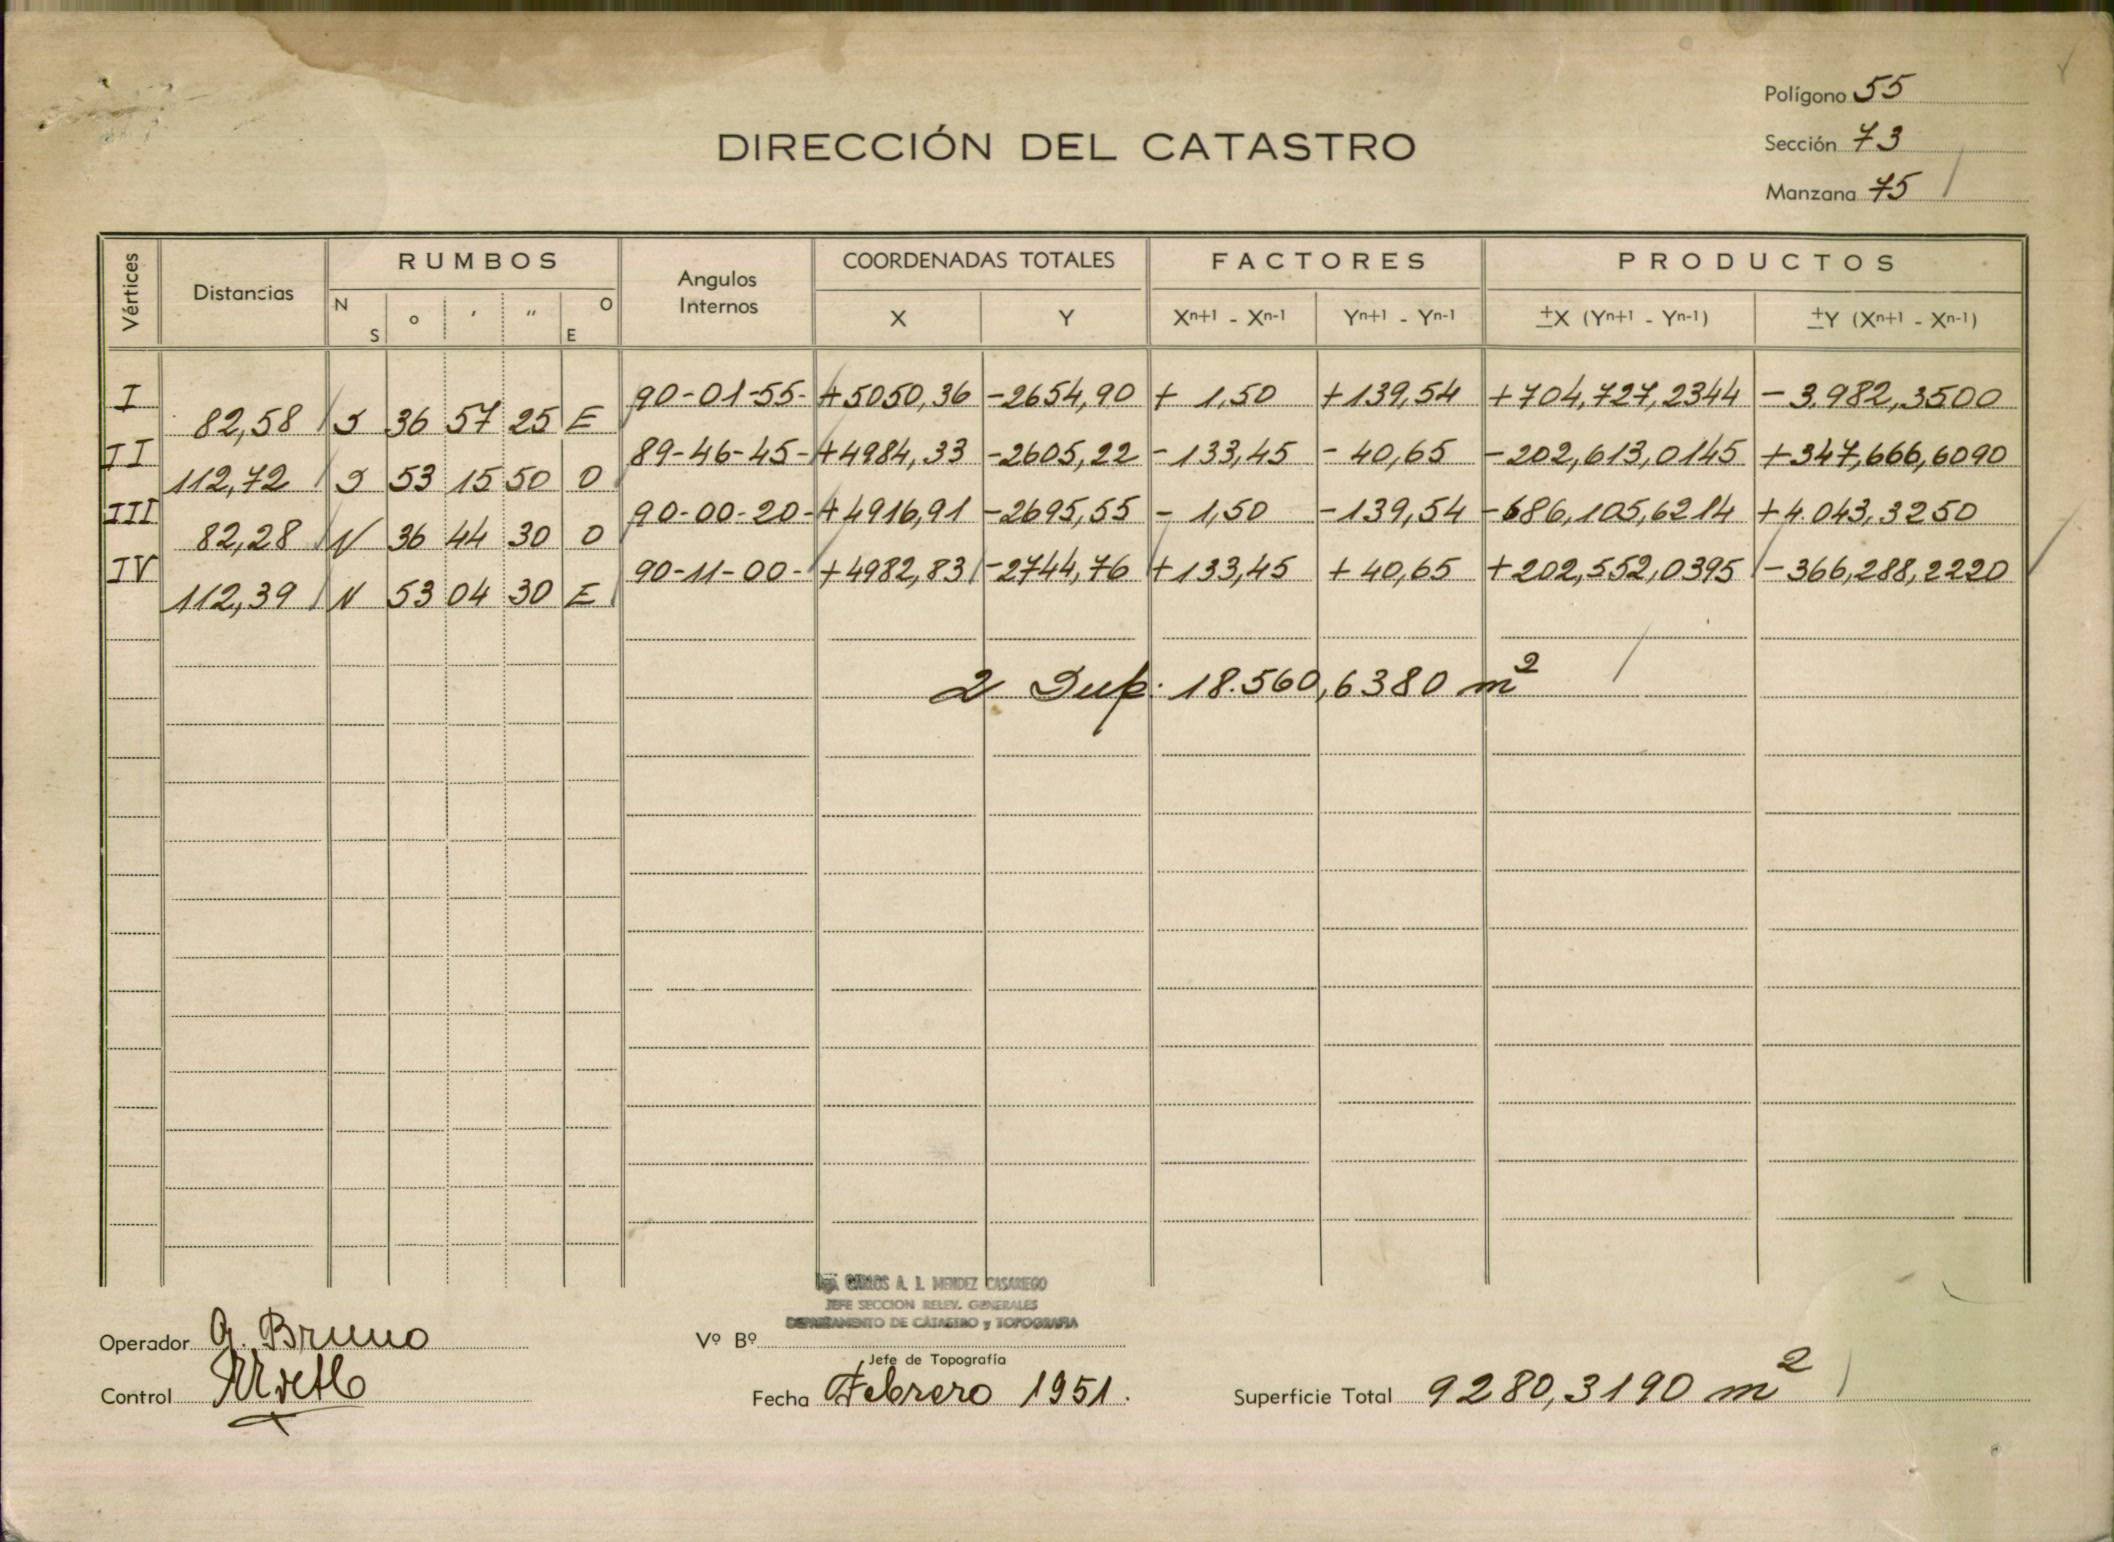 Polígono 55
DIRECCIÓN DEL CATASTRO
Sección 73
Manzana 75
Vértices Distancias RUMBOS Angulos Internos COORDENADAS TOTALES FACTORES PRODUCTOS
N S ° ′ ″ O E X Y Xn+1 - Xn-1 Yn+1 - Yn-1 ±X (Yn+1 - Yn-1) ±Y (Xn+1 - Xn-1)
I 90-01-55- +5050,36 -2654,90 + 1,50 +139,54 +704,727,2344 -3.982,3500
82,58 S 36 57 25 E
II 89-46-45- +4984,33 -2605,22 -133,45 -40,65 -202,613,0145 +347,666,6090
112,72 S 53 15 50 O
III 90-00-20- +4916,91 -2695,55 - 1,50 -139,54 -686,105,6214 +4.043,3250
82,28 N 36 44 30 O
IV 90-11-00- +4982,83 -2744,76 +133,45 +40,65 +202,552,0395 -366,288,2220
112,39 N 53 04 30 E
2 Sup. 18.560,6380 m²
CARLOS A. I. MENDEZ CASARIEGO
JEFE SECCION RELEV. GENERALES
DEPARTAMENTO DE CATASTRO y TOPOGRAFIA
Operador G. Bruno Vº Bº
Jefe de Topografía
Control Fecha Febrero 1951. Superficie Total 9280,3190 m²